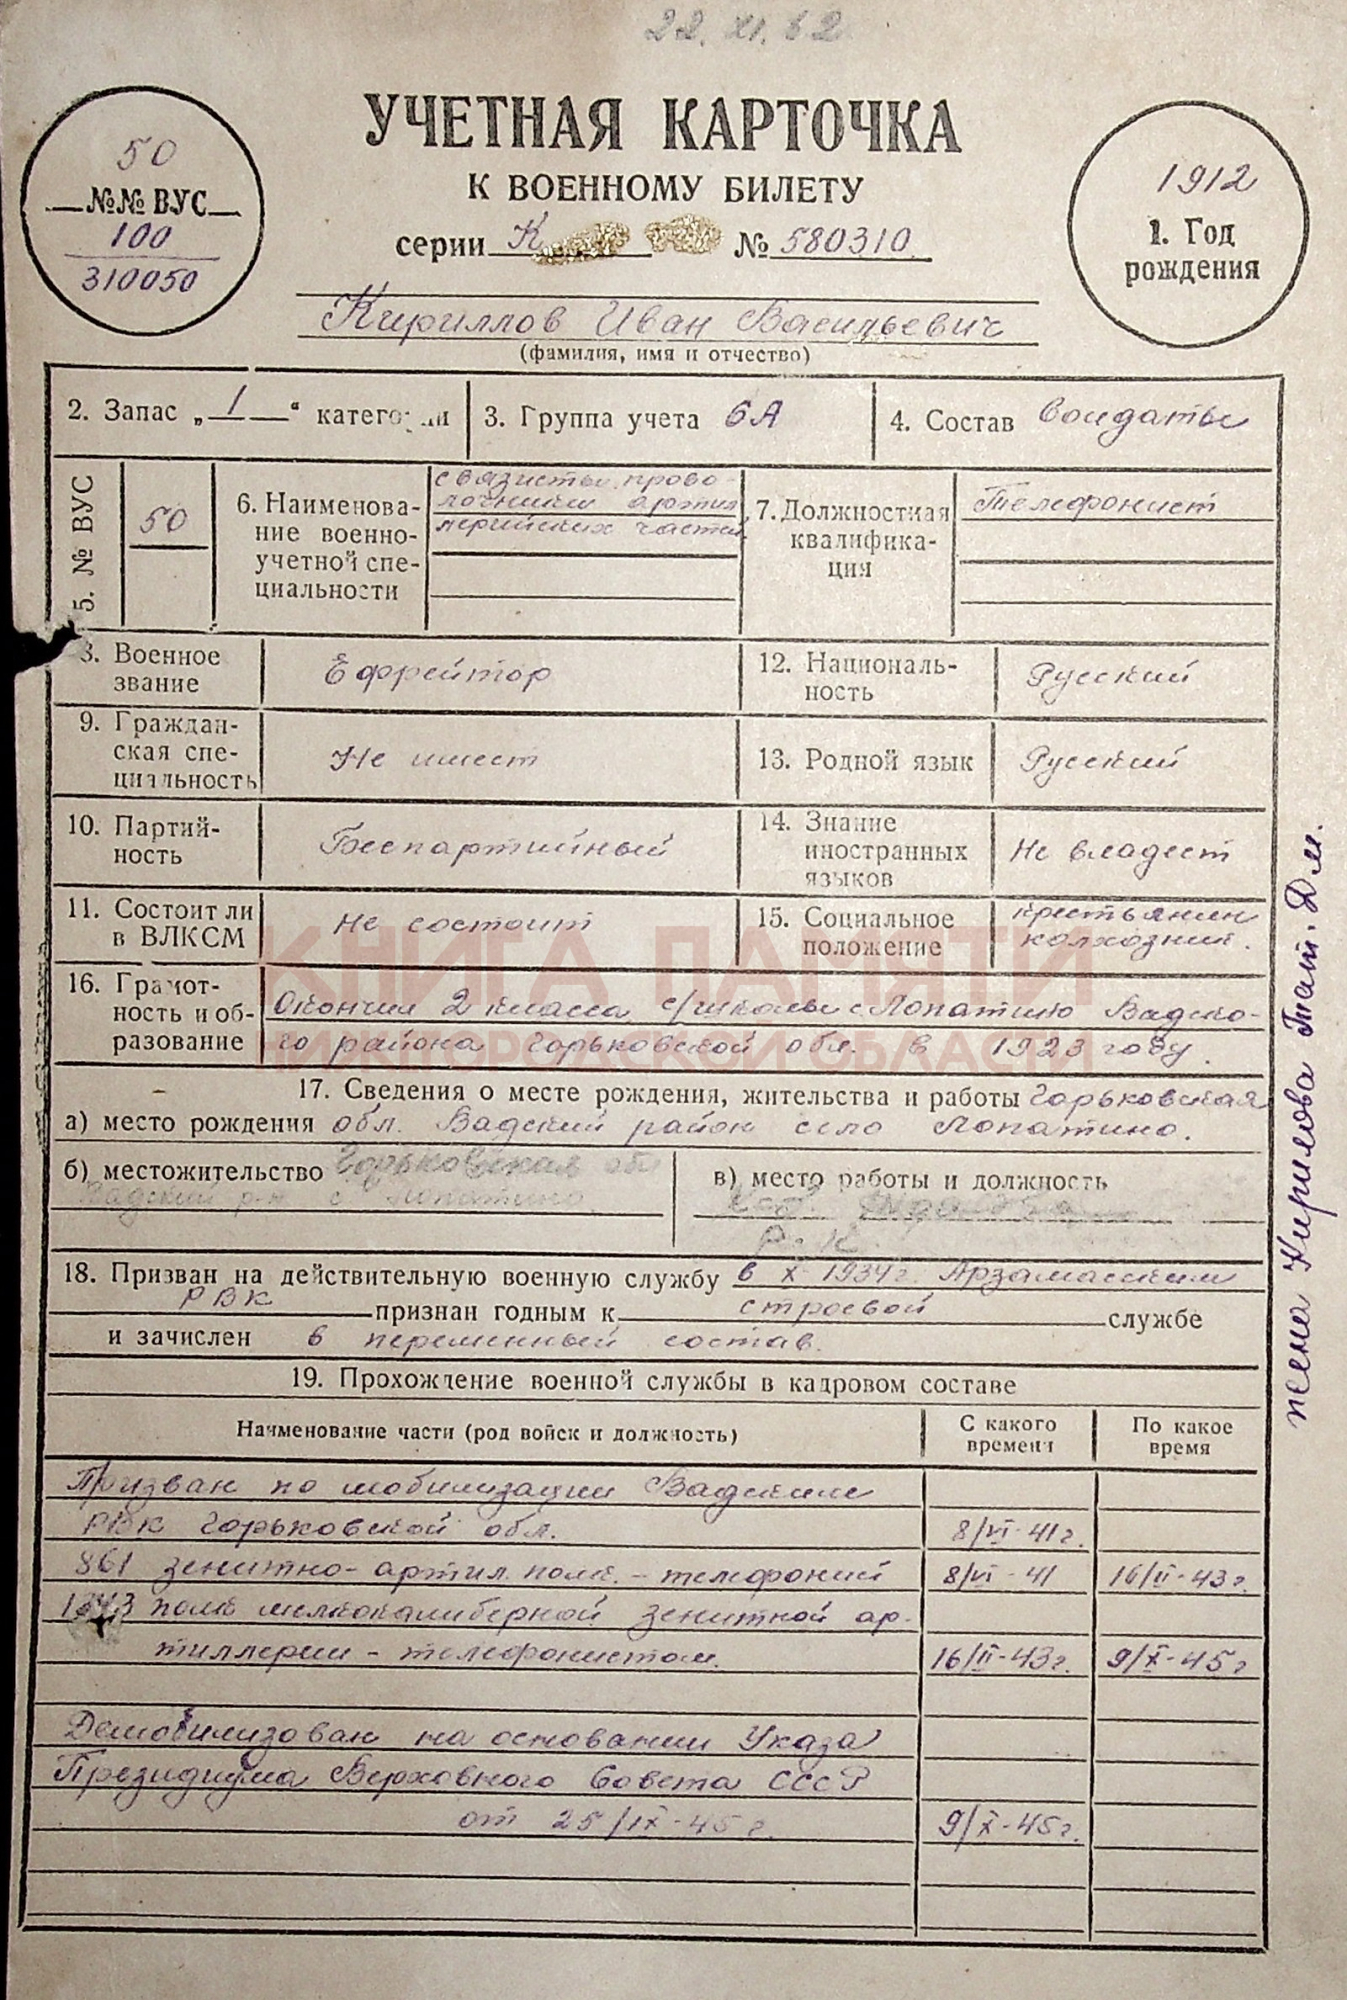 22.XI.62
УЧЕТНАЯ КАРТОЧКА
К ВОЕННОМУ БИЛЕТУ
серии К № 580310
50
№№ ВУС
100
310050
1912
1. Год
рождения
Кириллов Иван Васильевич
(фамилия, имя и отчество)
2. Запас „1“ категории
3. Группа учета 6А
4. Состав солдаты
5. № ВУС
50
6. Наименова-
ние военно-
учетной спе-
циальности
связисты прово-
лочники артил
лерийских частей
7. Должностная
квалифика-
ция
Телефонист
8. Военное
звание
Ефрейтор
12. Националь-
ность
Русский
9. Граждан-
ская спе-
циальность
Не имеет
13. Родной язык
Русский
10. Партий-
ность
Беспартийный
14. Знание
иностранных
языков
Не владеет
11. Состоит ли
в ВЛКСМ
Не состоит
15. Социальное
положение
крестьянин
колхозник.
КНИГА ПАМЯТИ
НИЖЕГОРОДСКОЙ ОБЛАСТИ
16. Грамот-
ность и об-
разование
Окончил 2 класса с/школы с Лопатино Вадско-
го района Горьковской обл. в 1923 году.
17. Сведения о месте рождения, жительства и работы Горьковская
а) место рождения обл. Вадский район село Лопатино.
б) местожительство Горьковская обл
Вадский р-н с. Лопатино
в) место работы и должность
18. Призван на действительную военную службу в X 1934 г. Арзамасским
РВК признан годным к строевой службе
и зачислен в переменный состав.
19. Прохождение военной службы в кадровом составе
Наименование части (род войск и должность)
С какого
времени
По какое
время
Призван по мобилизации Вадским
РВК Горьковской обл. 8/VI-41 г.
861 зенитно-артил. полк. - телефоний 8/VI-41 16/II-43 г.
полк мелкокалиберной зенитной ар-
тиллерии - телефонистом. 16/II-43 г. 9/X-45 г
Демобилизован на основании Указа
Президиума Верховного Совета СССР
от 25/IX-45 г. 9/X-45 г.
жена Кирилова Дм.